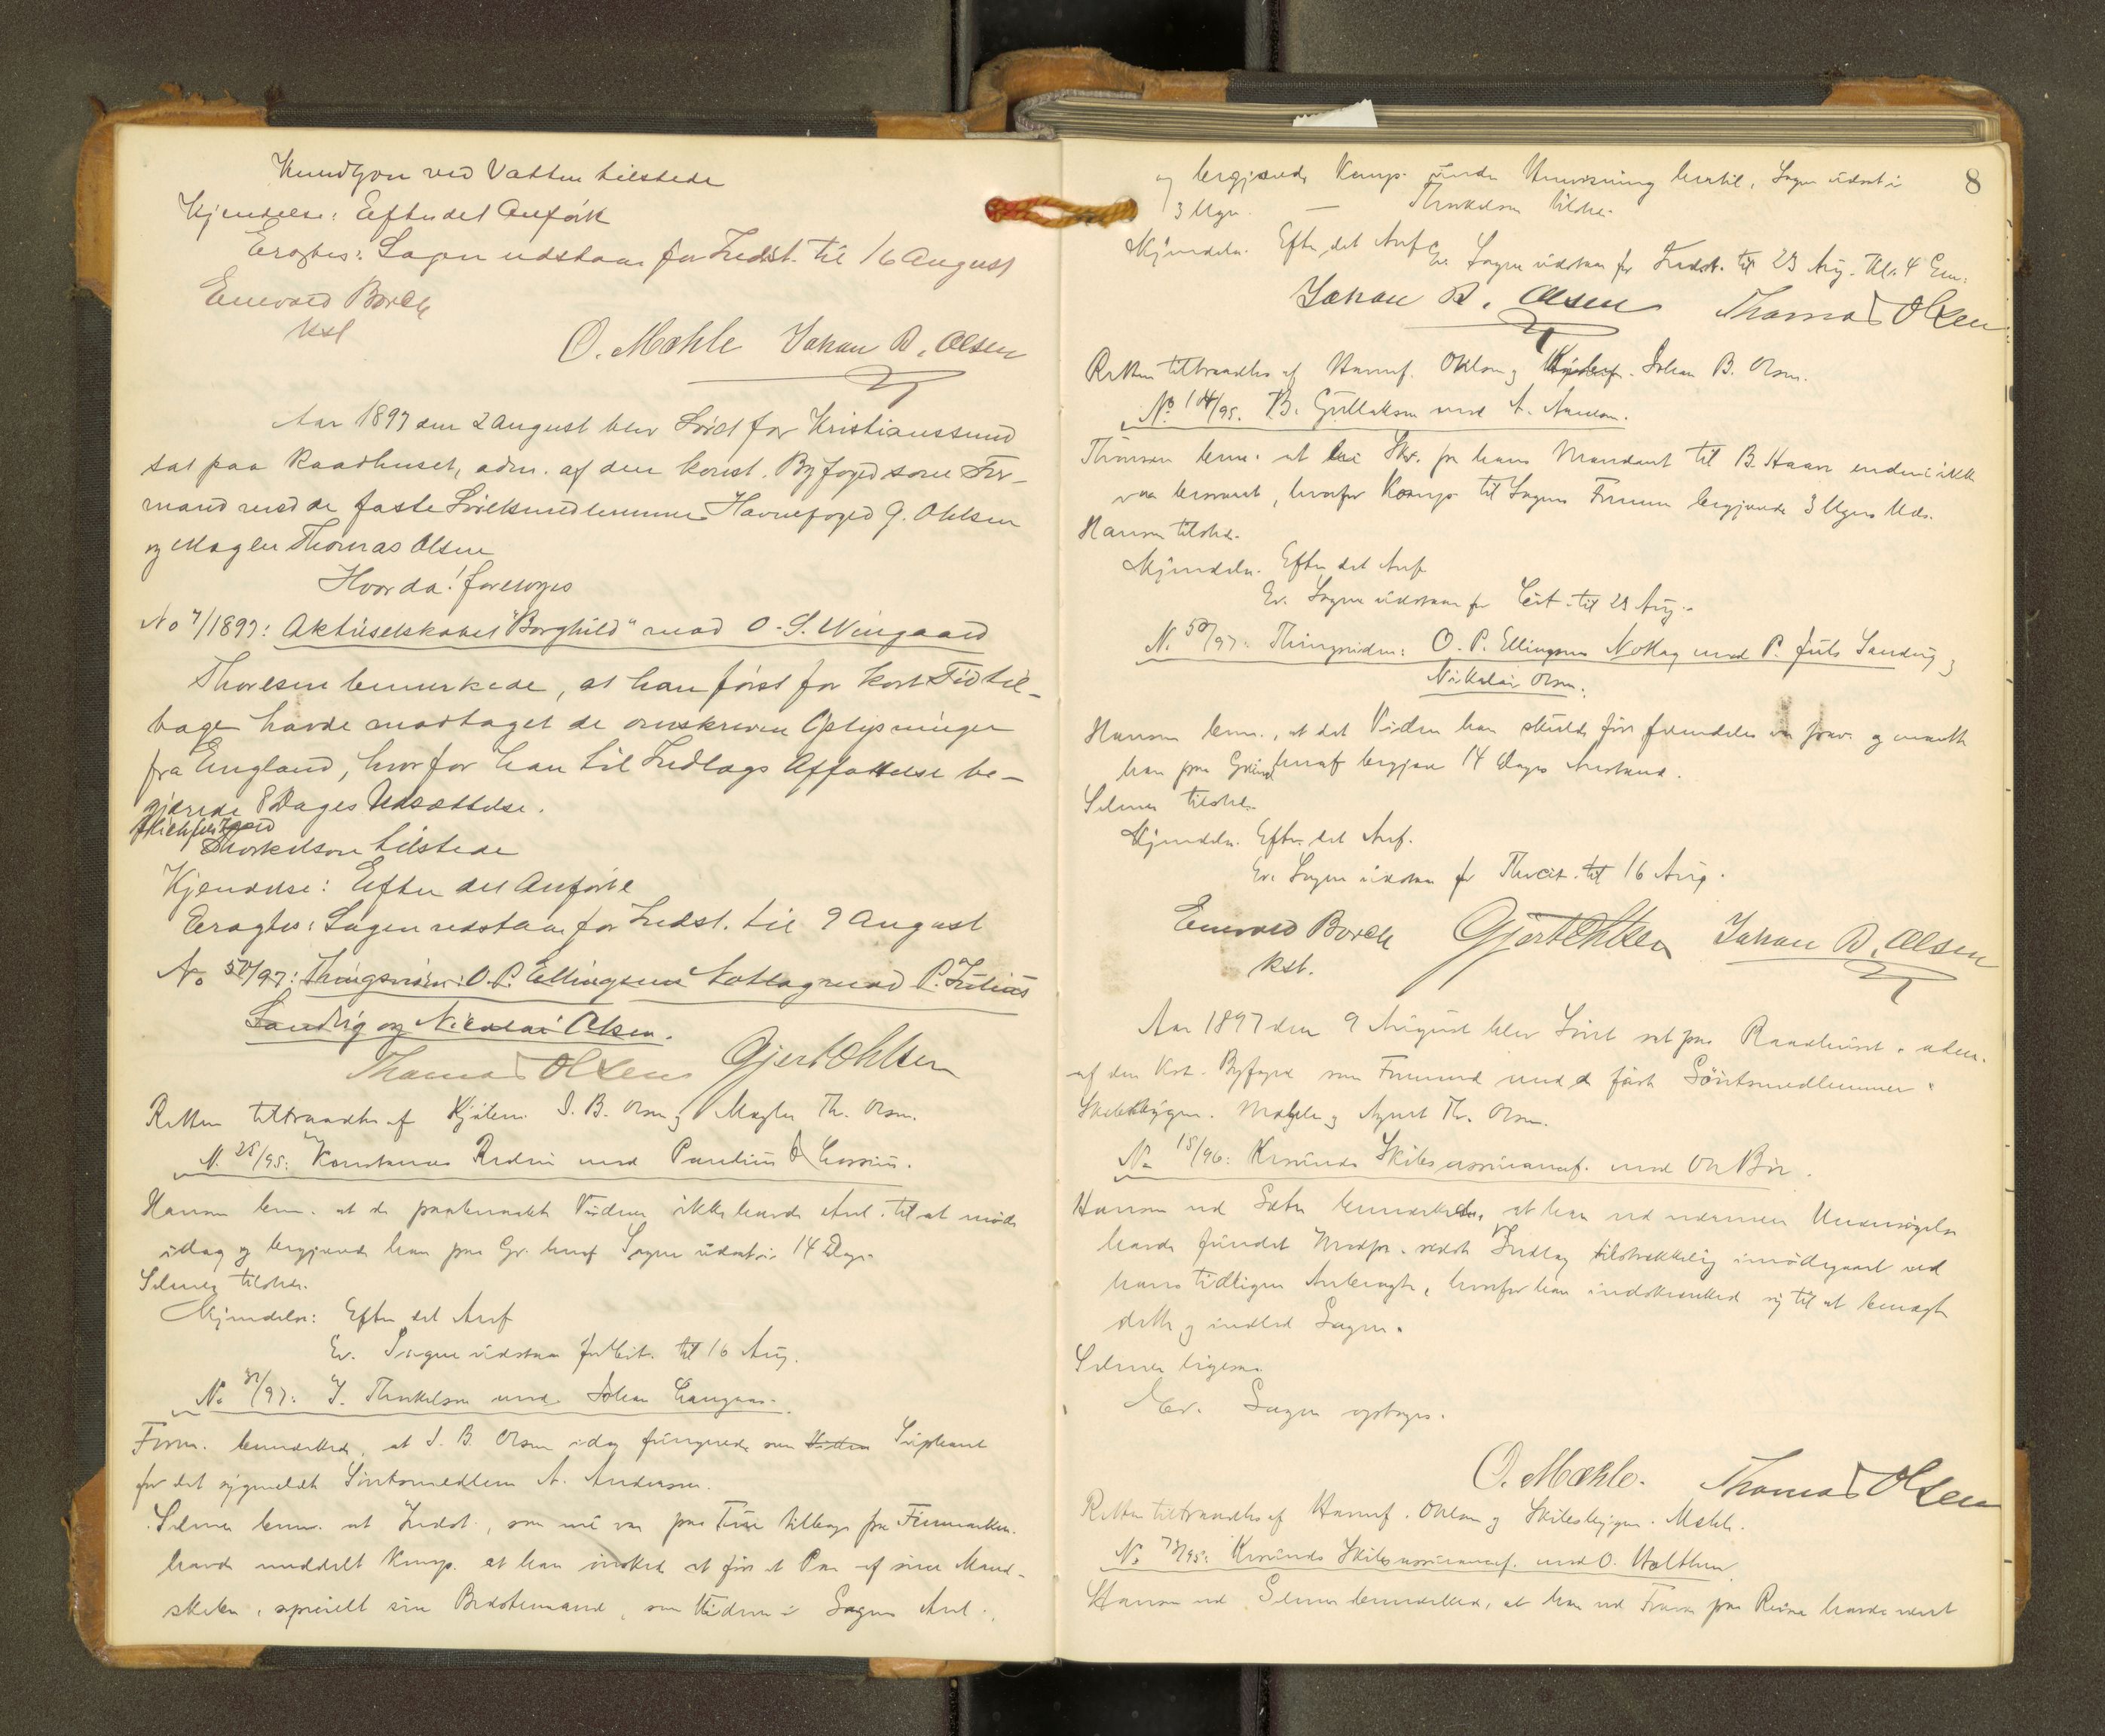 Knudtzon ved Vatten tilstede
Kjendelse: Efter det Anførte
Eragtes: Sagen udstaar for Indst. til 16 August
Edvard Borch
kst
O. Mæhle Johan B. Olsen
Aar 1897 den 2 August blev Søret for Kristianssund
sat paa Raadhuset, adm. af den konst. Byfoged som For-
mand med de faste Søretsmedlemmer Havnefoged G. Ohlsen
og Mægler Thomas Olsen
Hvorda! foretoges
No 7/1897: Aktieselskabet "Borghild" mod O. S. Wiigaard
Thoresen bemerkede, at han først for kort Tid til-
bage havde modtaget de omskrevne Oplysninger
fra England, hvorfor han til Indlægs Affattelse be-
gjærede 8 Dages Udsættelse.
Thorkelson tilstede
Kjendelse: Efter det Anførte
Eragtes: Sagen udstaar for Indst. til 9 August
No 50/97: Thingsvidne: O. P. Ellingsens Notlag mod P. Julius
Sandvig og Nicolai Olsen.
Thomas Olsen Gjert Ohlsen
Retten tiltraadtes af J. B. Olsen og Mægler Th. Olsen.
N. 28/95: Rederi mod
Hanson bem. at de paatænkte Vidner ikke havde Anl. til at møde
idag og begjærede han paa Gr. heraf Sagen udsat i 14 Dage
Selmer tilstede.
Kjendelse: Efter det Anf
Er. Sagen udstaar for Cit. til 16 Aug.
No /97: J. Thorkelson mod Johan Langaas.
Form. bemærkede, at J. B. Olsen idag fungerede som Supleant
for det sygmeldte Søretsmedlem A. Andersen.
Selmer bem. at Indst., som nu var paa Ture tilbage fra Finmarken
havde meddelt Komp. at han ønsked at føre et Par af sine Mand-
skaber, specielt sin Bedstemand, som Vidner i Sagens Anl.,
8
og begjærede Komp. under Henvisning hertil, Sagen udsat i
3 Uger. — Thorkelson tilstede.
Kjendelse. Efter det Anf
Er. Sagen udstaar for Indst. til 23 Aug. Kl. 4 Em.
Johan B. Olsen Thomas Olsen
Retten tiltraadtes af Havnef. Ohlsen og Johan B. Olsen.
No 104/95. B. Gullaksen mod A.
bem. at Skr. fra hans Mandant til B. Haar endnu ikke
var besvaret, hvorfor Komp. til Sagens Fremme begjærede 3 Ugers Uds.
Hanson tilstede.
Kjendelse. Efter det Anf
Er. Sagen udstaar for Cit. til 23 Aug.
N. 50/97: Thingsvidne: O. P. Ellingsens Notlag mod P. Juls Sandvig og
Nikolai Olsen.
Hanson bem., at det Vidne han skulde føre fremdeles var frav. og maatte
han paa Grund heraf begjære 14 Dages Anstand.
Selmer tilstede.
Kjendelse. Efter det Anf.
Er. Sagen udstaar for Thvcit. til 16 Aug.
Edvard Borch Gjert Ohlsen Johan B. Olsen
kst.
Aar 1897 den 9 August blev Søret sat paa Raadhuset, adm.
af den Kst. Byfoged som Formand med de faste Søretsmedlemmer
Skibsbygm. Mæhle og Agent Th. Olsen.
No 15/96: Krsunds Skibsassurancef. mod Ole Bøe.
Hanson ved Sæter bemærkede, at han ved nærmere Undersøgelse
havde fundet Modp. sidste Indlæg tilstrækkelig imødegaaet ved
hans tidligere Anbragte, hvorfor han indskrænked sig til at benægte
dette og indlod Sagen.
Selmer ligesaa
Er. Sagen optages.
O. Mæhle. Thomas Olsen
Retten tiltraadtes af Havnef. Ohlsen og Skibsbygm. Mæhle.
No 73/95: Krsunds Skibsassurancef. mod O. Wolthen.
Hanson ved Selmer bemærked, at han ved Fravær paa Reise havde været